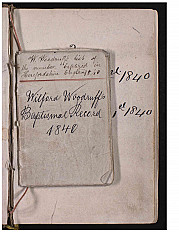 W. Woodruff's list of
the number baptized in
Herefordshire England 1840
Wilford Woodruff's
Baptismal Record
1840
1840
1840